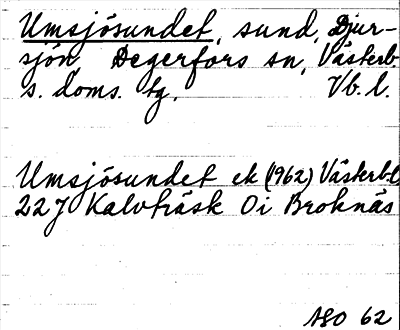 Umsjösundet, sund, Djur-
sjön, Degerfors sn, Västerb.
s. doms. tg. Vb. l.
Umsjösundet ek (1962) Västerb.l.
22J Kalvträsk Oi Broknäs
ASO 62